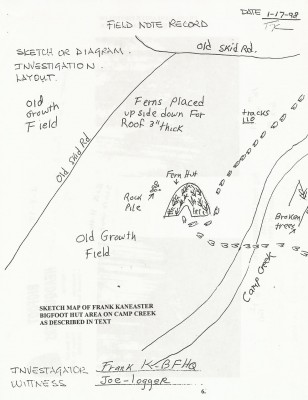 DATE 1-17-98
FIELD NOTE RECORD
SKETCH OR DIAGRAM.
INVESTIGATION.
LAYOUT.
Old Skid Rd.
Old
Growth
Field
Ferns Placed
up side down For
Roof 3" thick
tracks
Old Skid Rd
Fern Hut
Rock
Pile
Broken
trees
Old Growth
Field
Camp Creek
SKETCH MAP OF FRANK KANEASTER
BIGFOOT HUT AREA ON CAMP CREEK
AS DESCRIBED IN TEXT
INVESTAGATOR Frank K-BFHQ
WITTNESS Joe-logger
6.